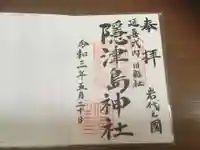 奉拝
岩代之國
延喜式内 旧縣社
隠津島神社
令和三年五月二十日